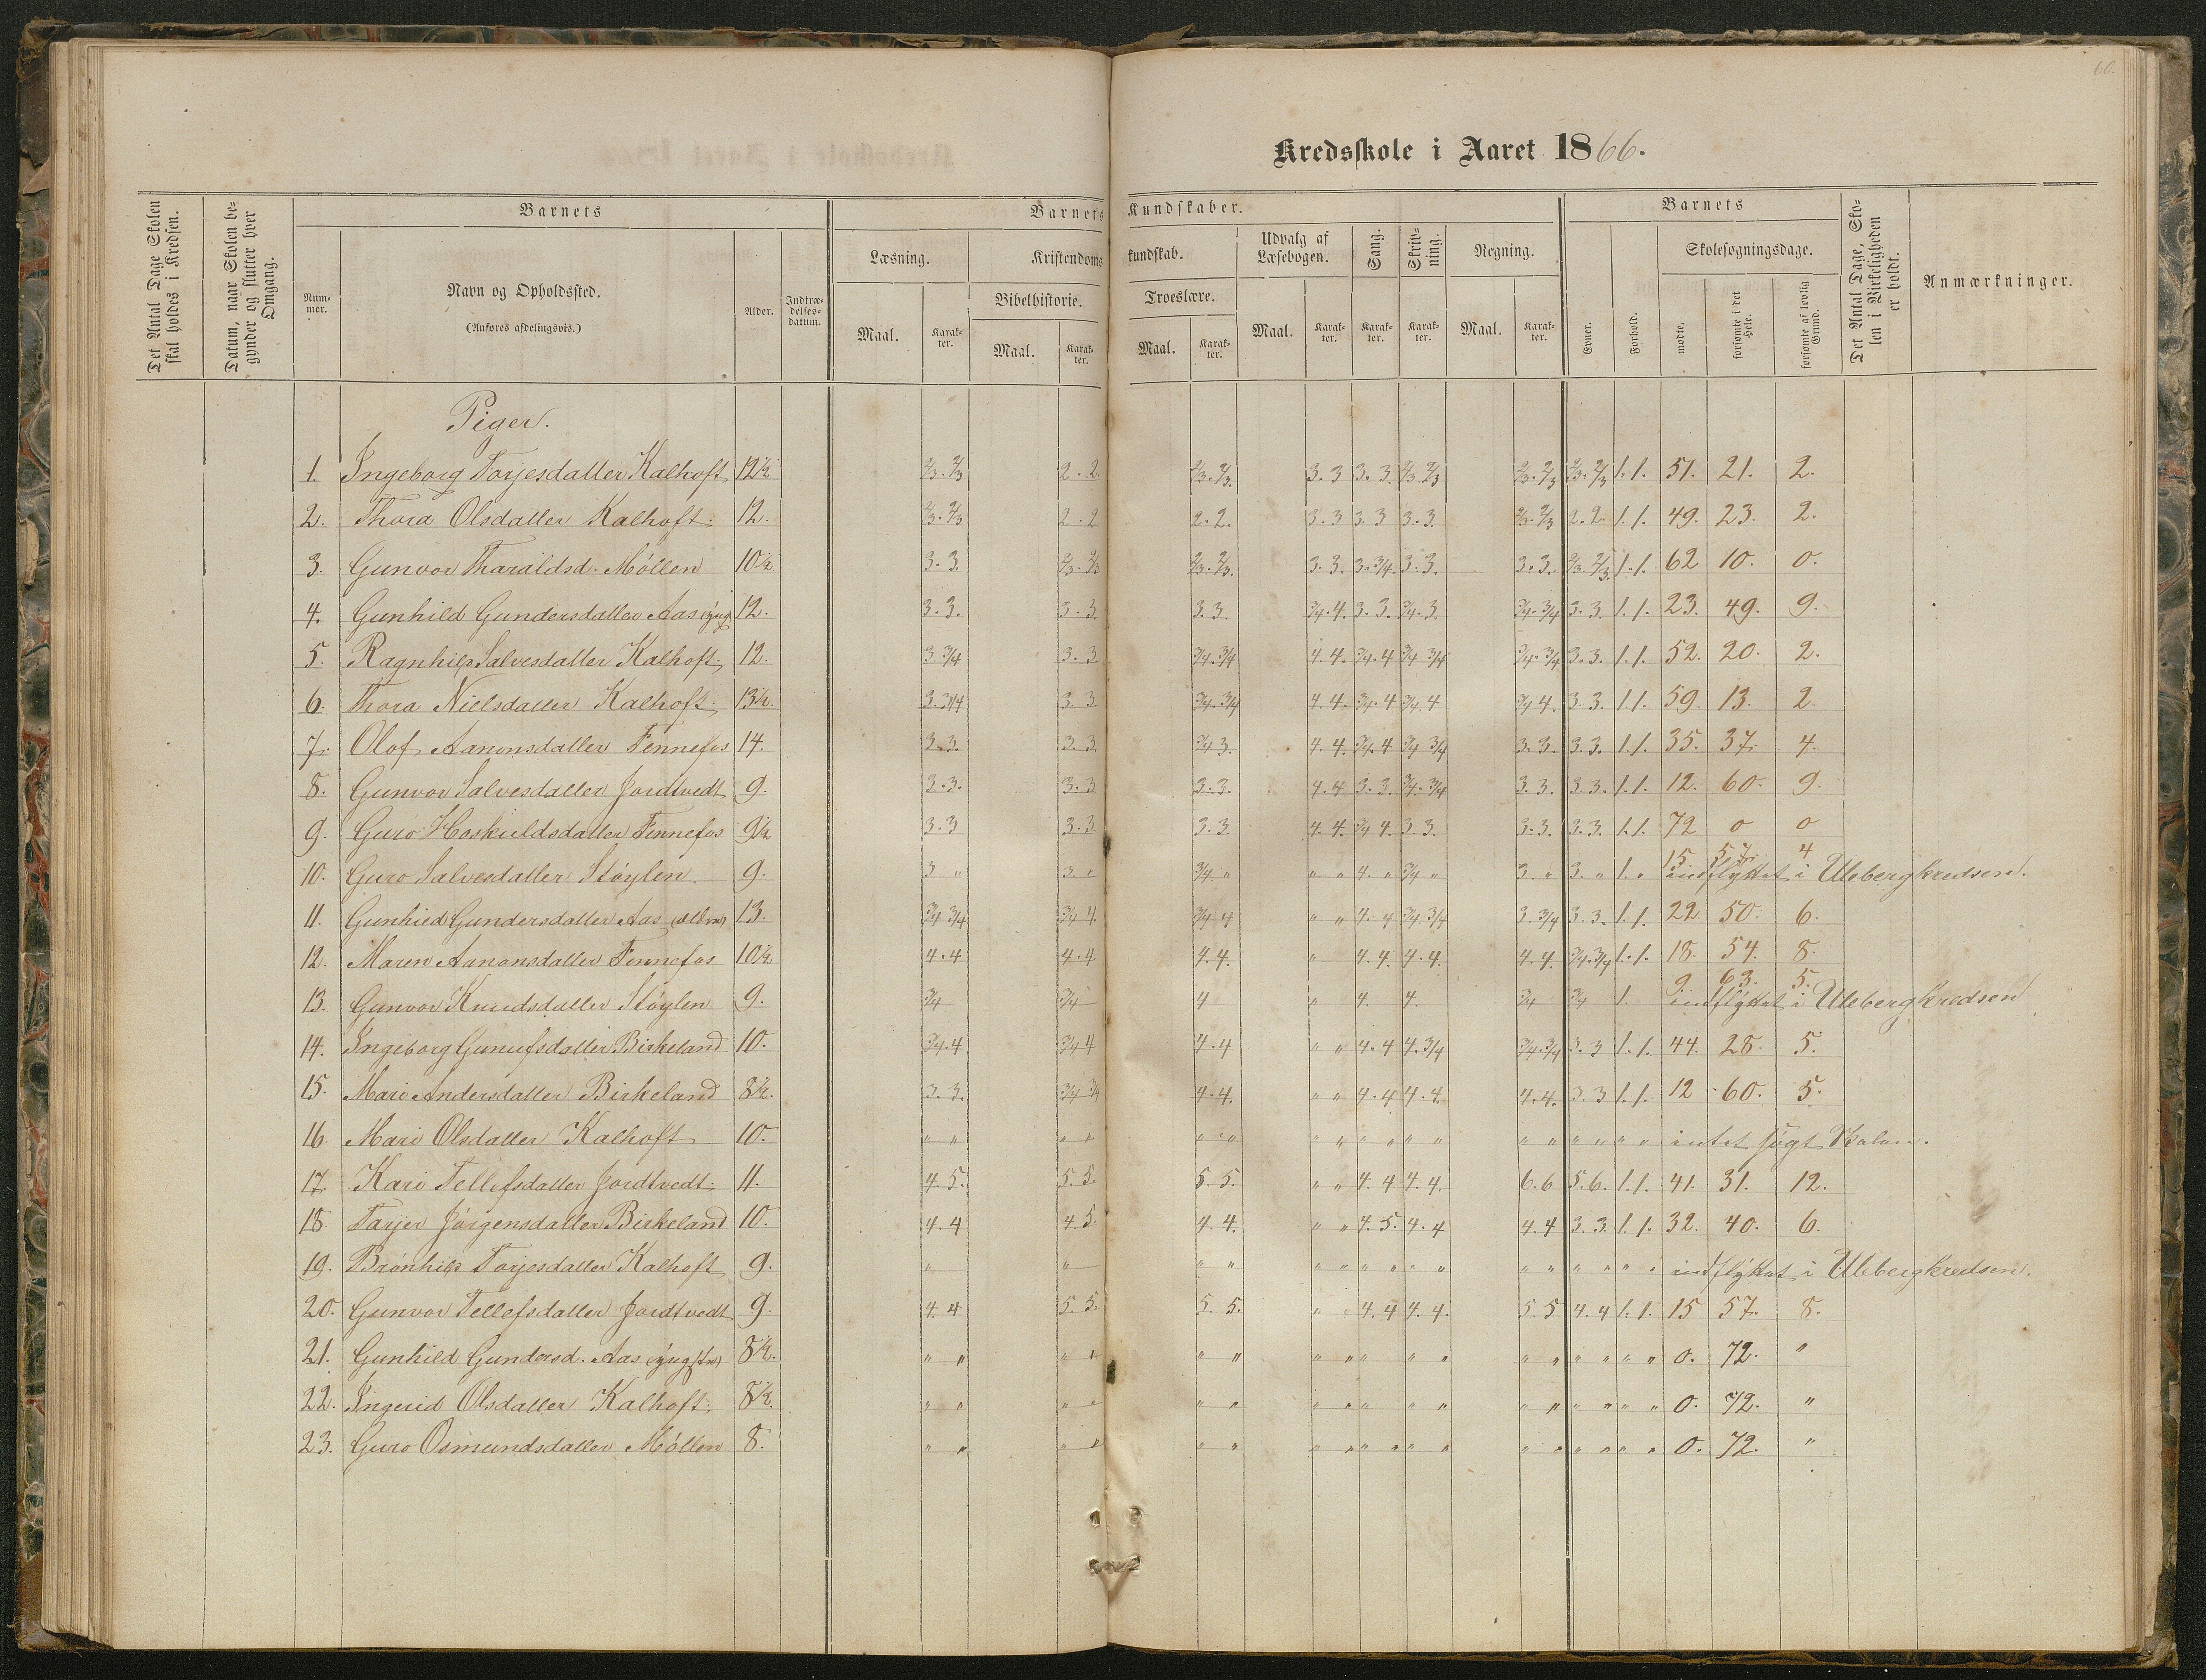 60.
Kredsskole i Aaret 1866.
Det Antal Dage Skolen skal holdes i Kredsen.
Datum, naar Skolen begynder og slutter hver Omgang.
Barnets
Nummer.
Navn og Opholdssted.
(Anføres afdelingsvis.)
Alder.
Indtrædelsesdatum.
Barnets Kundskaber.
Læsning.
Maal. Karakter.
Kristendomskundskab.
Bibelhistorie.
Maal. Karakter.
Troeslære.
Maal. Karakter.
Udvalg af Læsebogen.
Maal. Karakter.
Sang.
Karakter.
Skrivning.
Karakter.
Regning.
Maal. Karakter.
Barnets
Evner.
Forhold.
Skolesøgningsdage.
mødte.
forsømte i det Hele.
forsømte af lovlig Grund.
Det Antal Dage, Skolen i Virkeligheden er holdt.
Anmærkninger.
Piger.
1. Ingeborg Torjesdatter Kalhoft 12½ 2/3. 2/3 2. 2. 2/3. 2/3. 3. 3 3. 3. 2/3 2/3 2/3. 2/3 2/3. 2/3 1. 1. 51. 21. 2.
2. Thora Olsdatter Kalhoft. 12. 2/3. 2/3 2. 2 2. 2. 3. 3 3. 3 3. 3. 2/3. 2/3 2. 2. 1. 1. 49. 23. 2.
3. Gunvor Tharaldsd. Möllen 10½ 3. 3. 2/3. 2/3 2/3. 2/3. 3. 3. 3. 3/4. 3. 3. 3. 3. 2/3 2/3. 1. 1. 62 10. 0.
4. Gunhild Gundersdatter Aas 12. 3. 3. 3. 3 3. 3. 3/4. 4. 3. 3. 3/4. 3. 3/4. 3/4 3. 3. 1. 1. 23. 49. 9.
5. Ragnhild Salvesdatter Kalhoft. 12. 3 3/4 3. 3 3/4. 3/4 4. 4. 3/4. 4 3/4 3/4 3/4. 3/4 3. 3. 1. 1. 52. 20. 2.
6. Thora Nielsdatter Kalhoft. 13½. 3. 3/4 3. 3. 3/4. 3/4 4. 4. 3/4. 4 3/4. 4 3/4 4. 3. 3. 1. 1. 59. 13. 2.
7. Olof Aanonsdatter Fennefos 14. 3. 3. 3. 3. 3/4 3. 4. 4. 3/4. 4 3/4 3/4 3. 3. 3. 3. 1. 1. 35. 37. 4.
8. Gunvor Salvesdatter Jordtvedt 9. 3. 3. 3. 3 3. 3. 4. 4 3. 3. 3/4. 3/4 3. 3. 3. 3. 1. 1. 12. 60. 9.
9. Guro Hoskuldsdatter Fennefos 9½ 3. 3 3. 3. 3. 3. 4. 4. 3/4 4. 3. 3. 3. 3. 3. 3. 1. 1. 72 0 0
15. 57. 4
10. Guro Salvesdatter Stöylen 9. 3 " 3. " 3/4 " " " 4. " 3/4 " 3. " 3. " 1. " indflyttet i Ulebergkredsen.
11. Gunhild Gundersdatter Aas 13. 3/4 3/4 3/4 4. 3/4 4 " " 4. 4 3/4. 3/4 3. 3/4 3. 3. 1. 1. 22. 50. 6.
12. Maren Aanonsdatter Fennefos 10½ 4. 4 4. 4 4. 4. " 4. 4. 4. 4. 4. 4. 3/4. 3/4 1. 1. 18. 54. 8.
9. 63. 5.
13. Gunvor Knudsdatter Stöylen 9. 3/4 3/4 4 " 4. 4. 3/4 3/4 1. indflyttet i Ulebergkredsen
14. Ingeborg Gunufsdatter Birkeland 10. 3/4. 4 3/4 4 4. 4 " " 4. 4 4. 3/4 3/4. 3/4 3. 3 1. 1. 44. 28. 5.
15. Mari Andersdatter Birkeland 8½. 3. 3. 3/4 3/4 4. 4. " " 4. 4 4. 4. 4. 4. 3. 3 1. 1. 12 60. 5.
16. Mari Olsdatter Kalhoft 10. " " " " " " " " " " " " " " " " " " intet sögt Skolen.
17. Kari Tellefsdatter Jordtvedt. 11. 4. 5. 5. 5. 5. 5. " " 4. 4 4. 4. 6. 6 5. 6. 1. 1. 41. 31. 12.
18. Tarjer Jörgensdatter Birkeland 10. 4. 4 4. 5. 4. 4. " " 4. 5. 4. 4 4. 4 3. 3. 1. 1. 32. 40. 6.
19. Brönhild Torjesdatter Kalhoft 9. " " " " " " " " " " " " " " " " indflyttet i Ulebergkredsen.
20. Gunvor Tellefsdatter Jordtvedt 9. 4. 4 5. 5. 5. 5. " " 4. 4 4. 4. 5. 5 4. 4 1. 1. 15 57. 8.
21. Gunhild Gundersd. Aas 8½. " " " " " " " " " " " " " " " " " 0. 72. "
22. Ingerid Olsdatter Kalhoft. 8½. " " " " " " " " " " " " " " " " " 0. 72. "
23. Guro Osmundsdatter Möllen 8. " " " " " " " " " " " " " " " " " " 0. 72. "